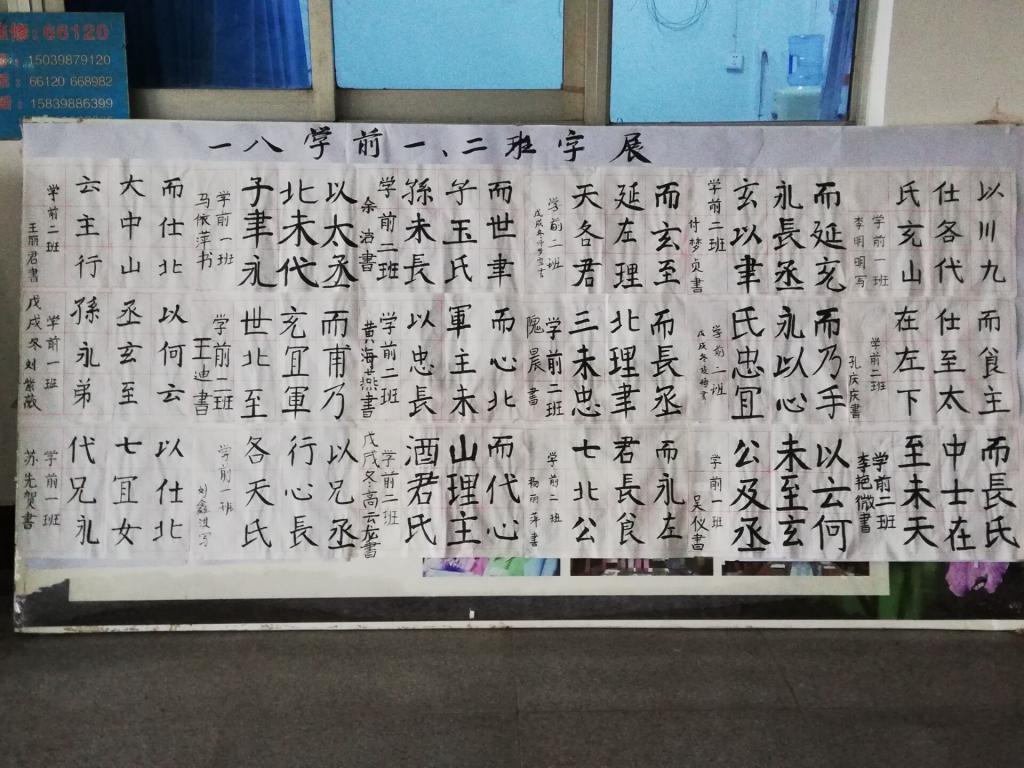 维修:66120
15039879120
66120 668982
15839886399
一八学前一、二班字展
以川九
仕各代
氏充山
学前一班
李明明写
而延充
永長丞
玄以聿
学前二班
付梦贞書
而玄至
延左理
天各君
学前二班
戊戌冬
而世聿
子玉氏
孫未長
学前二班
余洁書
以太丞
北未代
子聿永
学前一班
马依萍书
而仕北
大中山
云主行
学前二班
王丽君書
而食主
仕至太
在左下
学前二班
孔庆庆書
而乃手
永以心
氏忠宜
学前二班
戊戌冬
而長丞
北理聿
三未忠
学前二班
隗晨書
而心北
軍主未
以忠長
学前二班
黄海燕書
而甫乃
充宜軍
世北至
学前二班
王迪書
以何云
丞玄至
孫永弟
学前一班
戊戌冬刘紫薇
而長氏
中士在
至未天
学前二班
李艳微書
以云何
未至玄
公及丞
学前一班
吴仪書
而永左
君長食
七北公
学前二班
杨丽萍書
而代心
山理主
酒君氏
学前二班
戊戌冬高云龙書
以兄丞
行心長
各天氏
学前一班
刘鑫淇写
以仕北
七宜女
代兄永
学前一班
苏先贺書